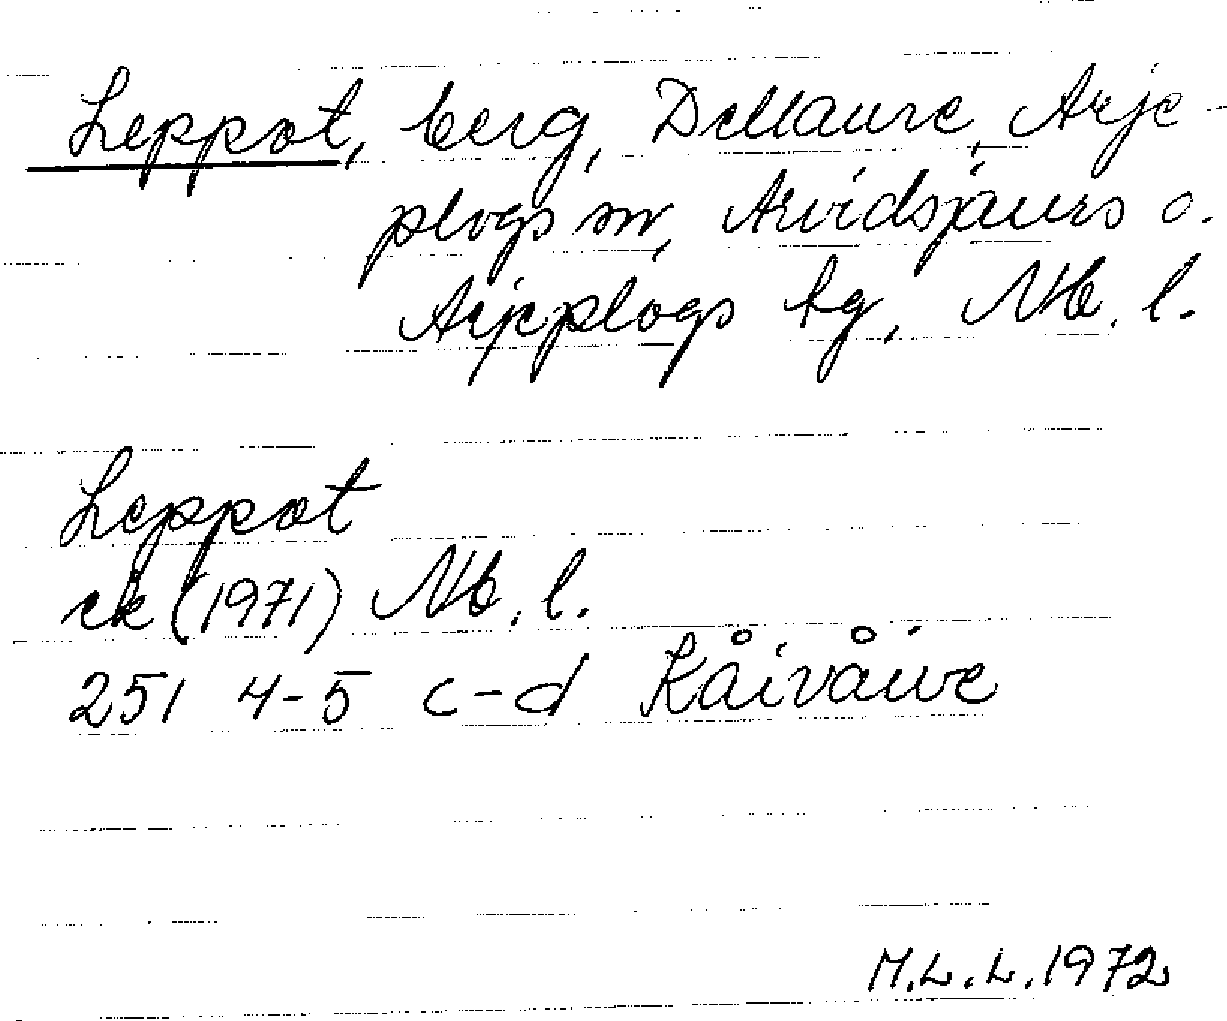 Leppot, berg, Dellaure, Arje-
plogs sn, Arvidsjaurs o.
Arjeplogs tg, Nb. l.
Leppot
rk (1971) Nb. l.
251 4-5 c-d Kåivåive
M.L.L. 1972